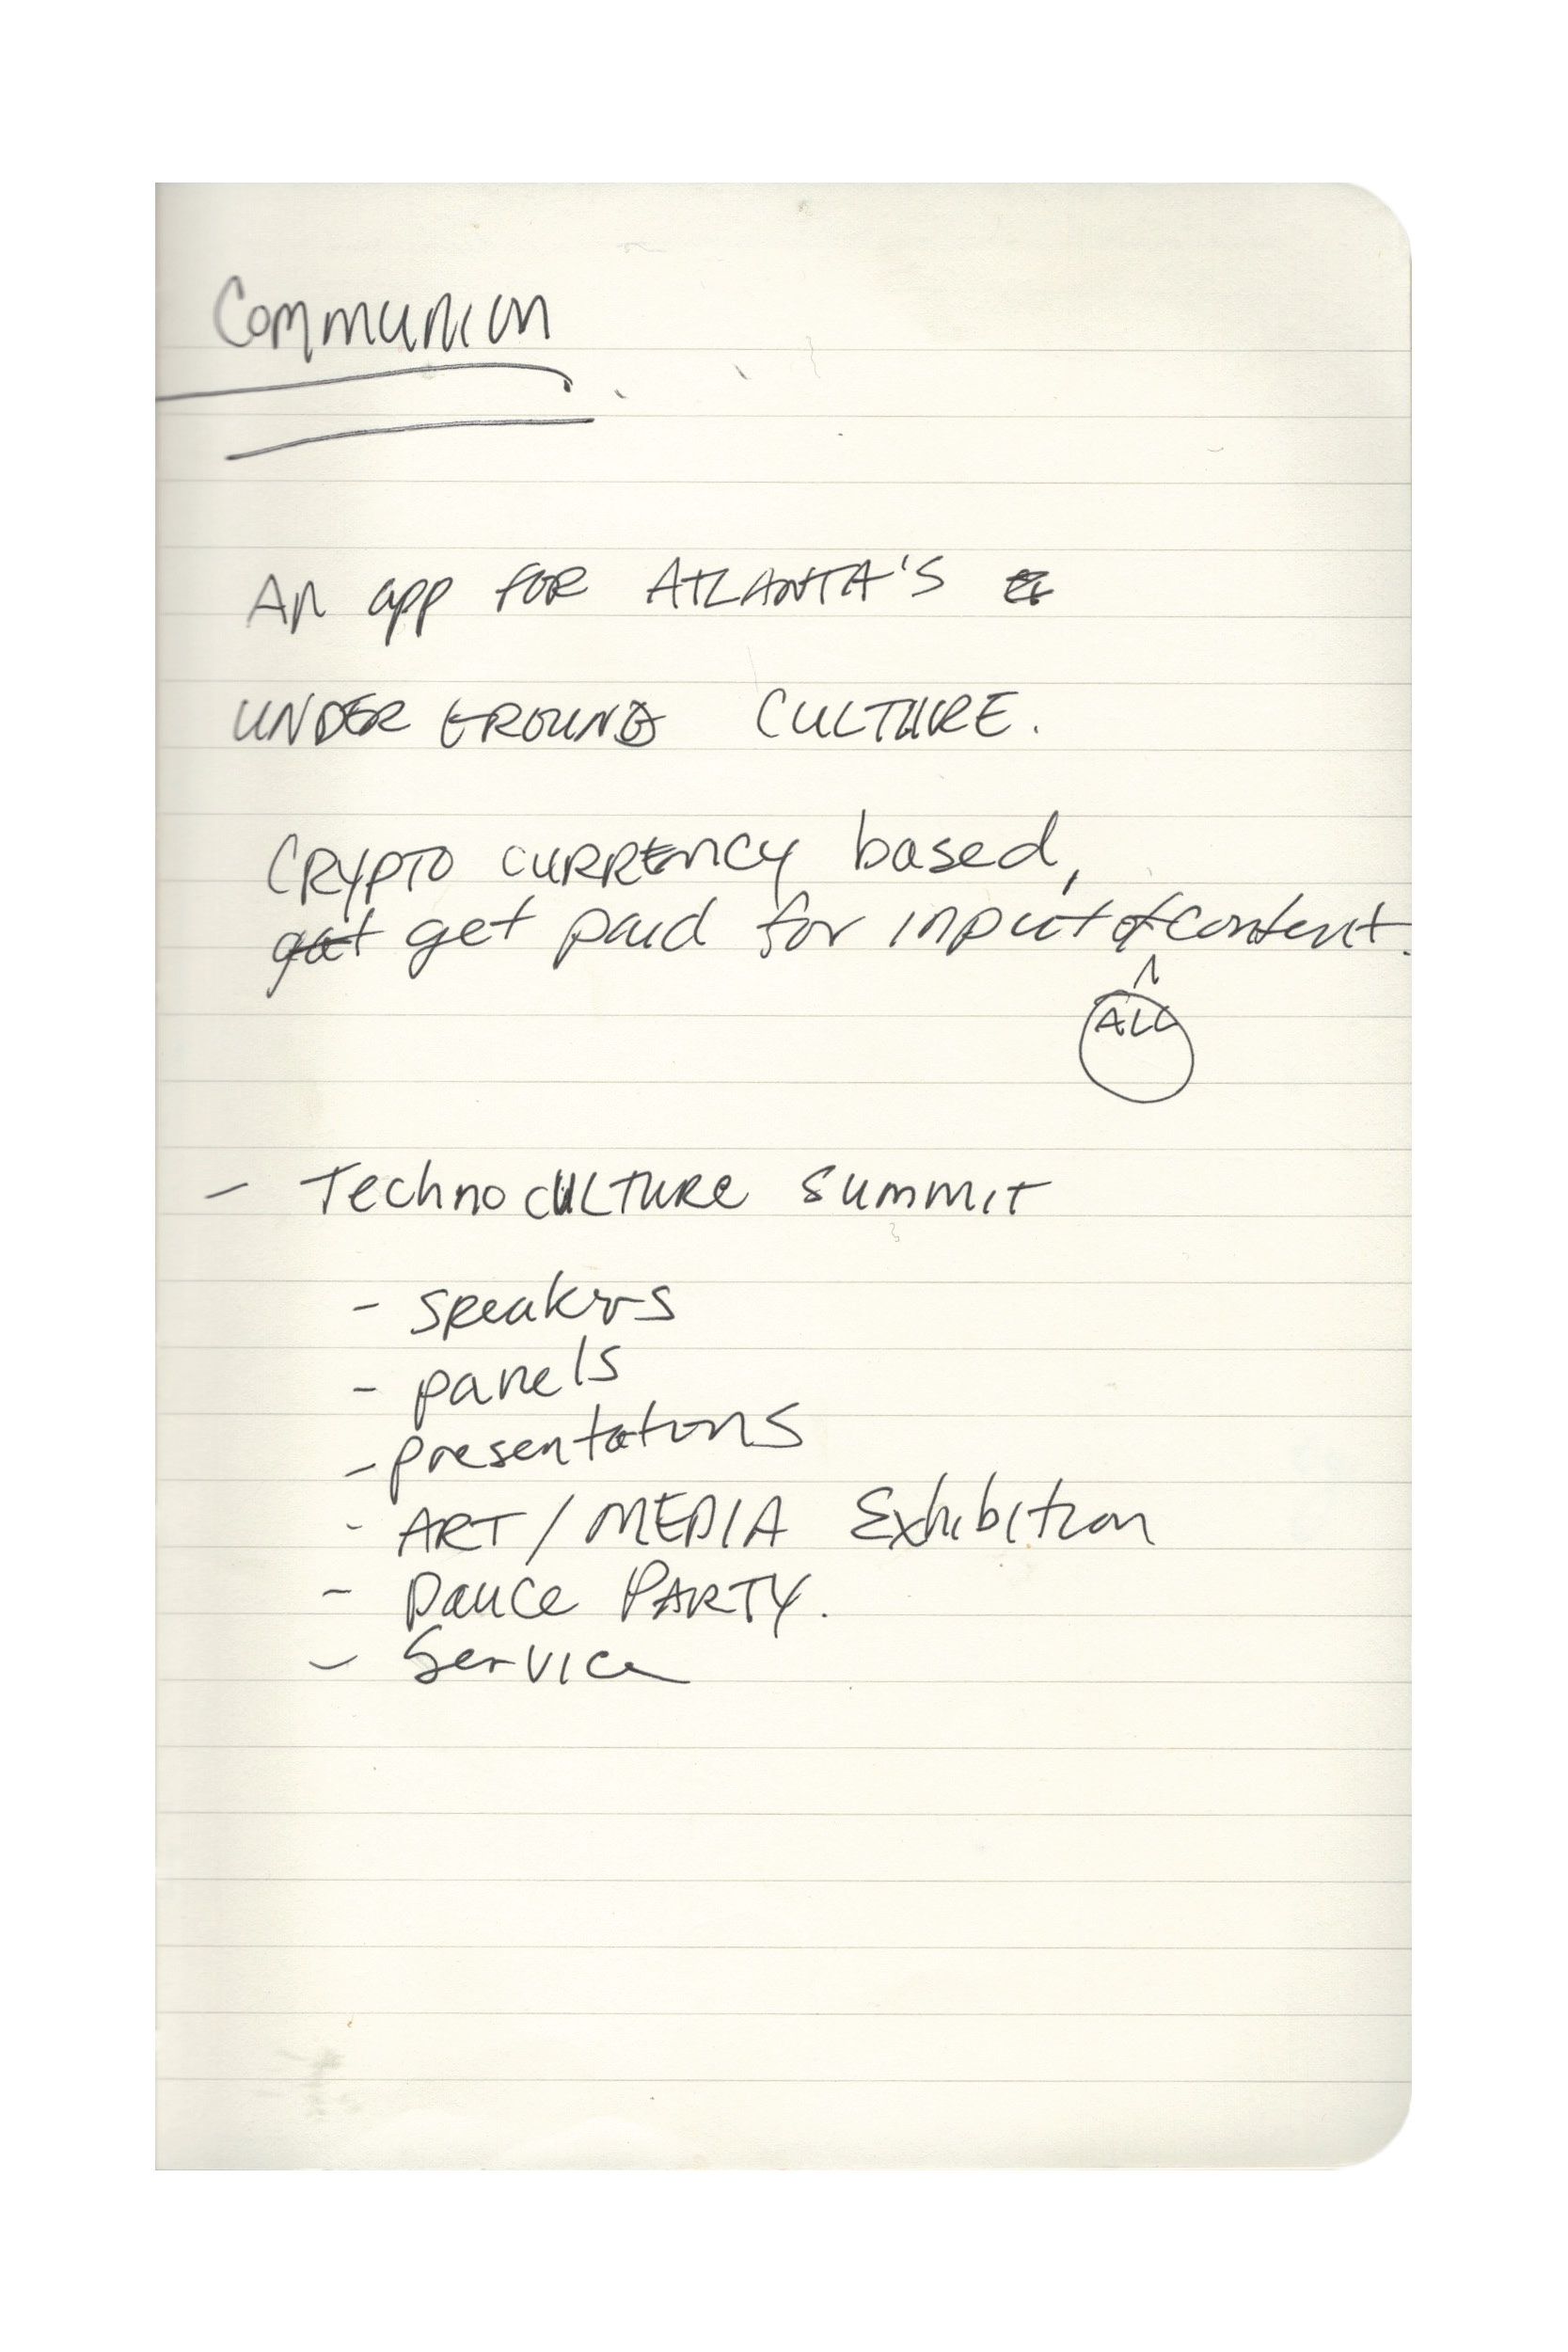 Communion
An app for ATLANTA'S
UNDERGROUND CULTURE.
CRYPTO CURRENCY based,
get paid for input of content.
ALL
- Technoculture Summit
- speakers
- panels
- presentations
- ART/MEDIA Exhibition
- Dance PARTY.
- Service